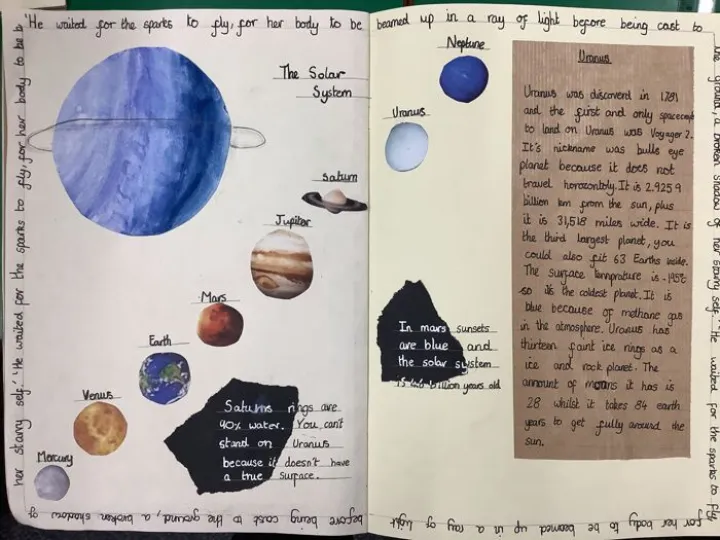 'He waited for the sparks to fly, for her body to be beamed up in a ray of light before being cast to
the ground, a broken shadow of her starry self.' 'He waited for the sparks to fly
for her body to be beamed up in a ray of light
before being cast to the ground, a broken shadow of
her starry self.' 'He waited for the sparks to fly, for her body to be
The Solar
System
Saturn
Jupiter
Mars
Earth
Venus
Mercury
Saturns rings are
90% water. You can't
stand on Uranus
because it doesn't have
a true surface.
Neptune
Uranus
In mars sunsets
are blue and
the solar system
billion years old
Uranus
Uranus was discoverd in 1781
and the first and only spacecraft
to land on Uranus was Voyager 2.
It's nickname was bulls eye
planet because it does not
travel horozontoly. It is 2.9259
billion km from the sun, plus
it is 31,518 miles wide. It is
the third largest planet, you
could also fit 63 Earths inside.
The surface temprature is -195c
so its the coldest planet. It is
blue because of methane gas
in the atmosphere. Uranus has
thirteen faint ice rings as a
ice and rock planet. The
ammount of moons it has is
28 whilst it takes 84 earth
years to get fully around the
sun.